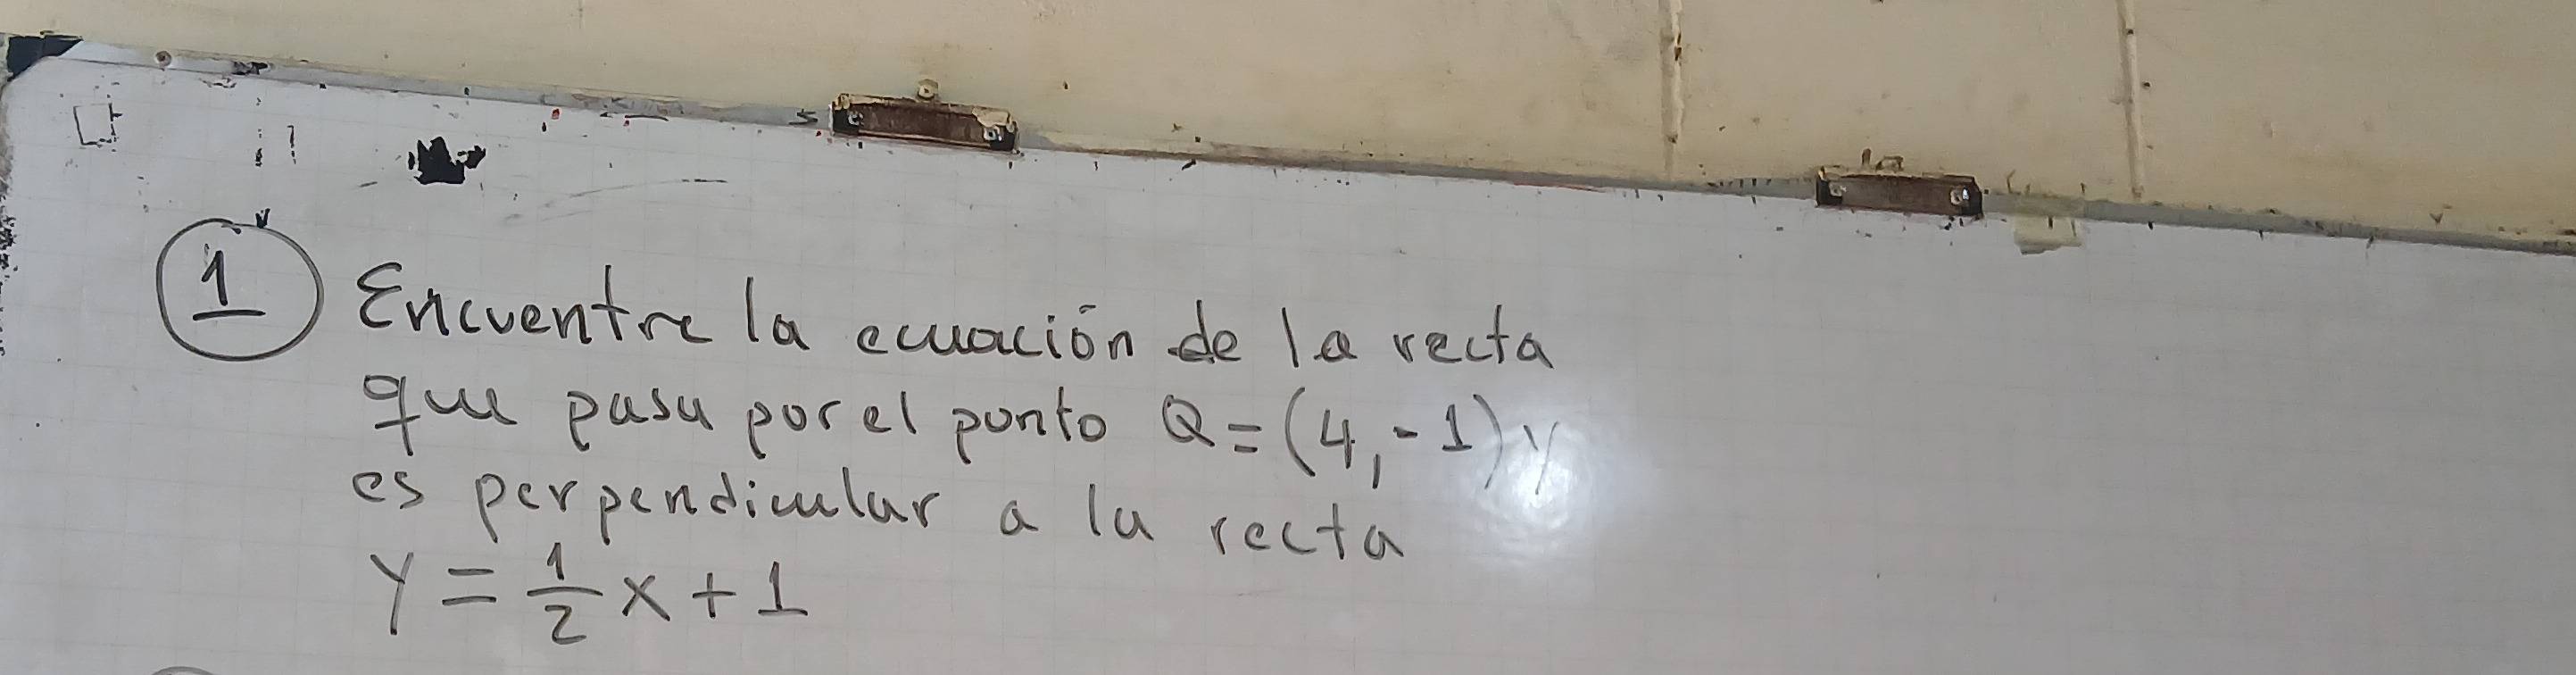 1 Encuentre la ecuación de la recta
que pasa por el punto Q=(4,-1) y
es perpendicular a la recta
y = 1/2 x + 1